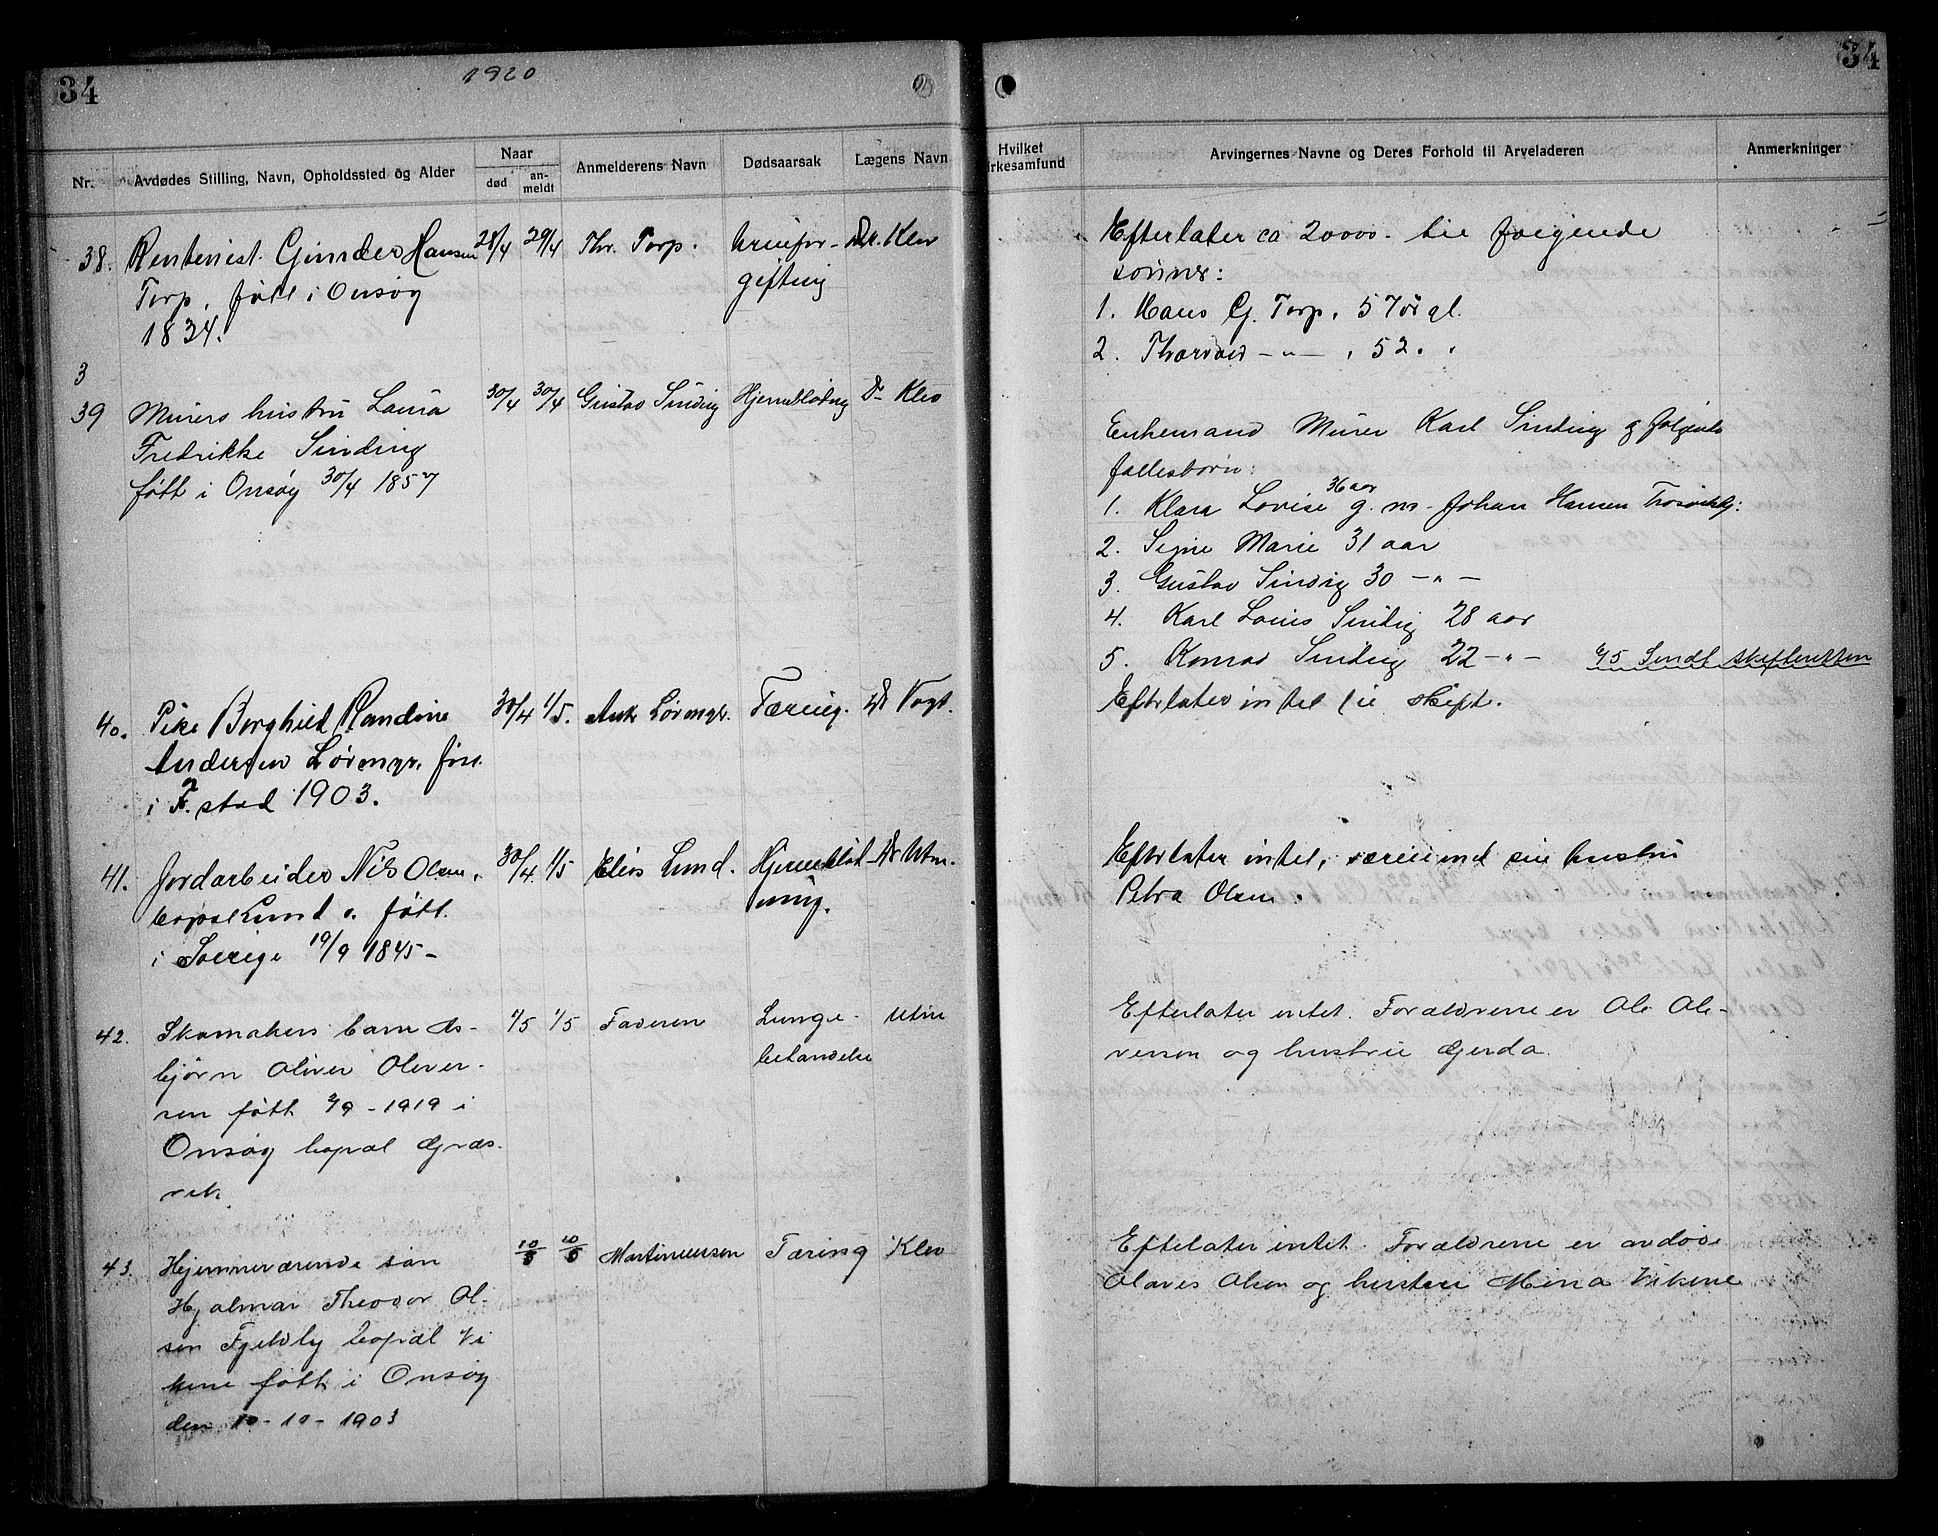 34
1920
Nr.
Avdødes Stilling, Navn, Opholdssted og Alder
Naar
død
an-
meldt
Anmelderens Navn
Dødsaarsak
Lægens Navn
38. Rentenist. Gunder Hansen 28/4 29/4 Thr. Torp. Urinfor- Dr. Klev
Torp. født i Onsøy giftnig
1834.
3
39 Murers hustru Laura 30/4 30/4 Gustav Sinding Hjerneblødnig Dr Klev
Fredrikke Sinding
født i Onsøy 30/4 1857
40. Pike Borghild Randine 30/4 1/5. Ank Lørengr. Tæring. Dr Vogt.
Andersen Lørengr. født
i F. stad 1903.
41. Jordarbeider Nils Olsen, 30/4 1/5 Elias Lund. Hjerneblød- Dr Utne.
bopæl Lund. født. ning.
i Sverige 19/9 1845 -
42. Skomakers barn As- 1/5 1/5 Faderen Lunge- Utne
bjørn Oliver Oliver- betændelse
sen født 2/9 - 1919 i
Onsøy bopæl Græs-
vik
43. Hjemmeværende søn 10/5 10/5 Martinussen Tæring Klev
Hjalmar Theodor Ol-
sen Fjeldly bopæl Vi
kene født i Onsøy
den 10 - 10 - 1903
34
Hvilket
irkesamfund
Arvingernes Navne og Deres Forhold til Arveladeren
Anmerkninger
Efterlater ca 20000.- til følgende
sønner:
1. Hans G. Torp, 57 år gl.
2. Thorvald - " - , 52 . .
Enkemand Murer Karl Sinding og følgende
fællesbørn:
1. Klara Lovise 36 aar g. m. Johan Hansen Trosvikbg:
2. Signe Marie 31 aar
3. Gustav Sinding 30 - " -
4. Karl Louis Sinding 28 aar
5. Konrad Sinding 22 - " - 4/5 Sendt skifteretten
Efterlater intet til skifte.
Efterlater intet, væreiend sin hustru
Petra Olsen.
Efterlater intet. Forældrene er Ole Oli-
versen og hustru Gerda.
Efterlater intet. Forældrene er avdøde
Olaves Olsen og hustru Mina Vikene